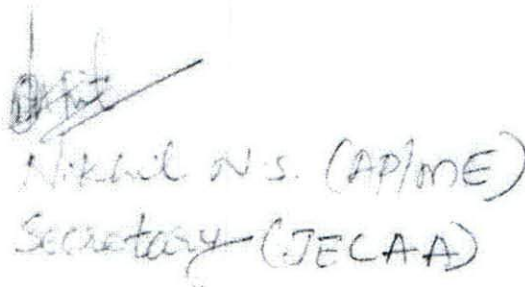 Nikhil N.S. (AP/ME)
Secretary (JECAA)